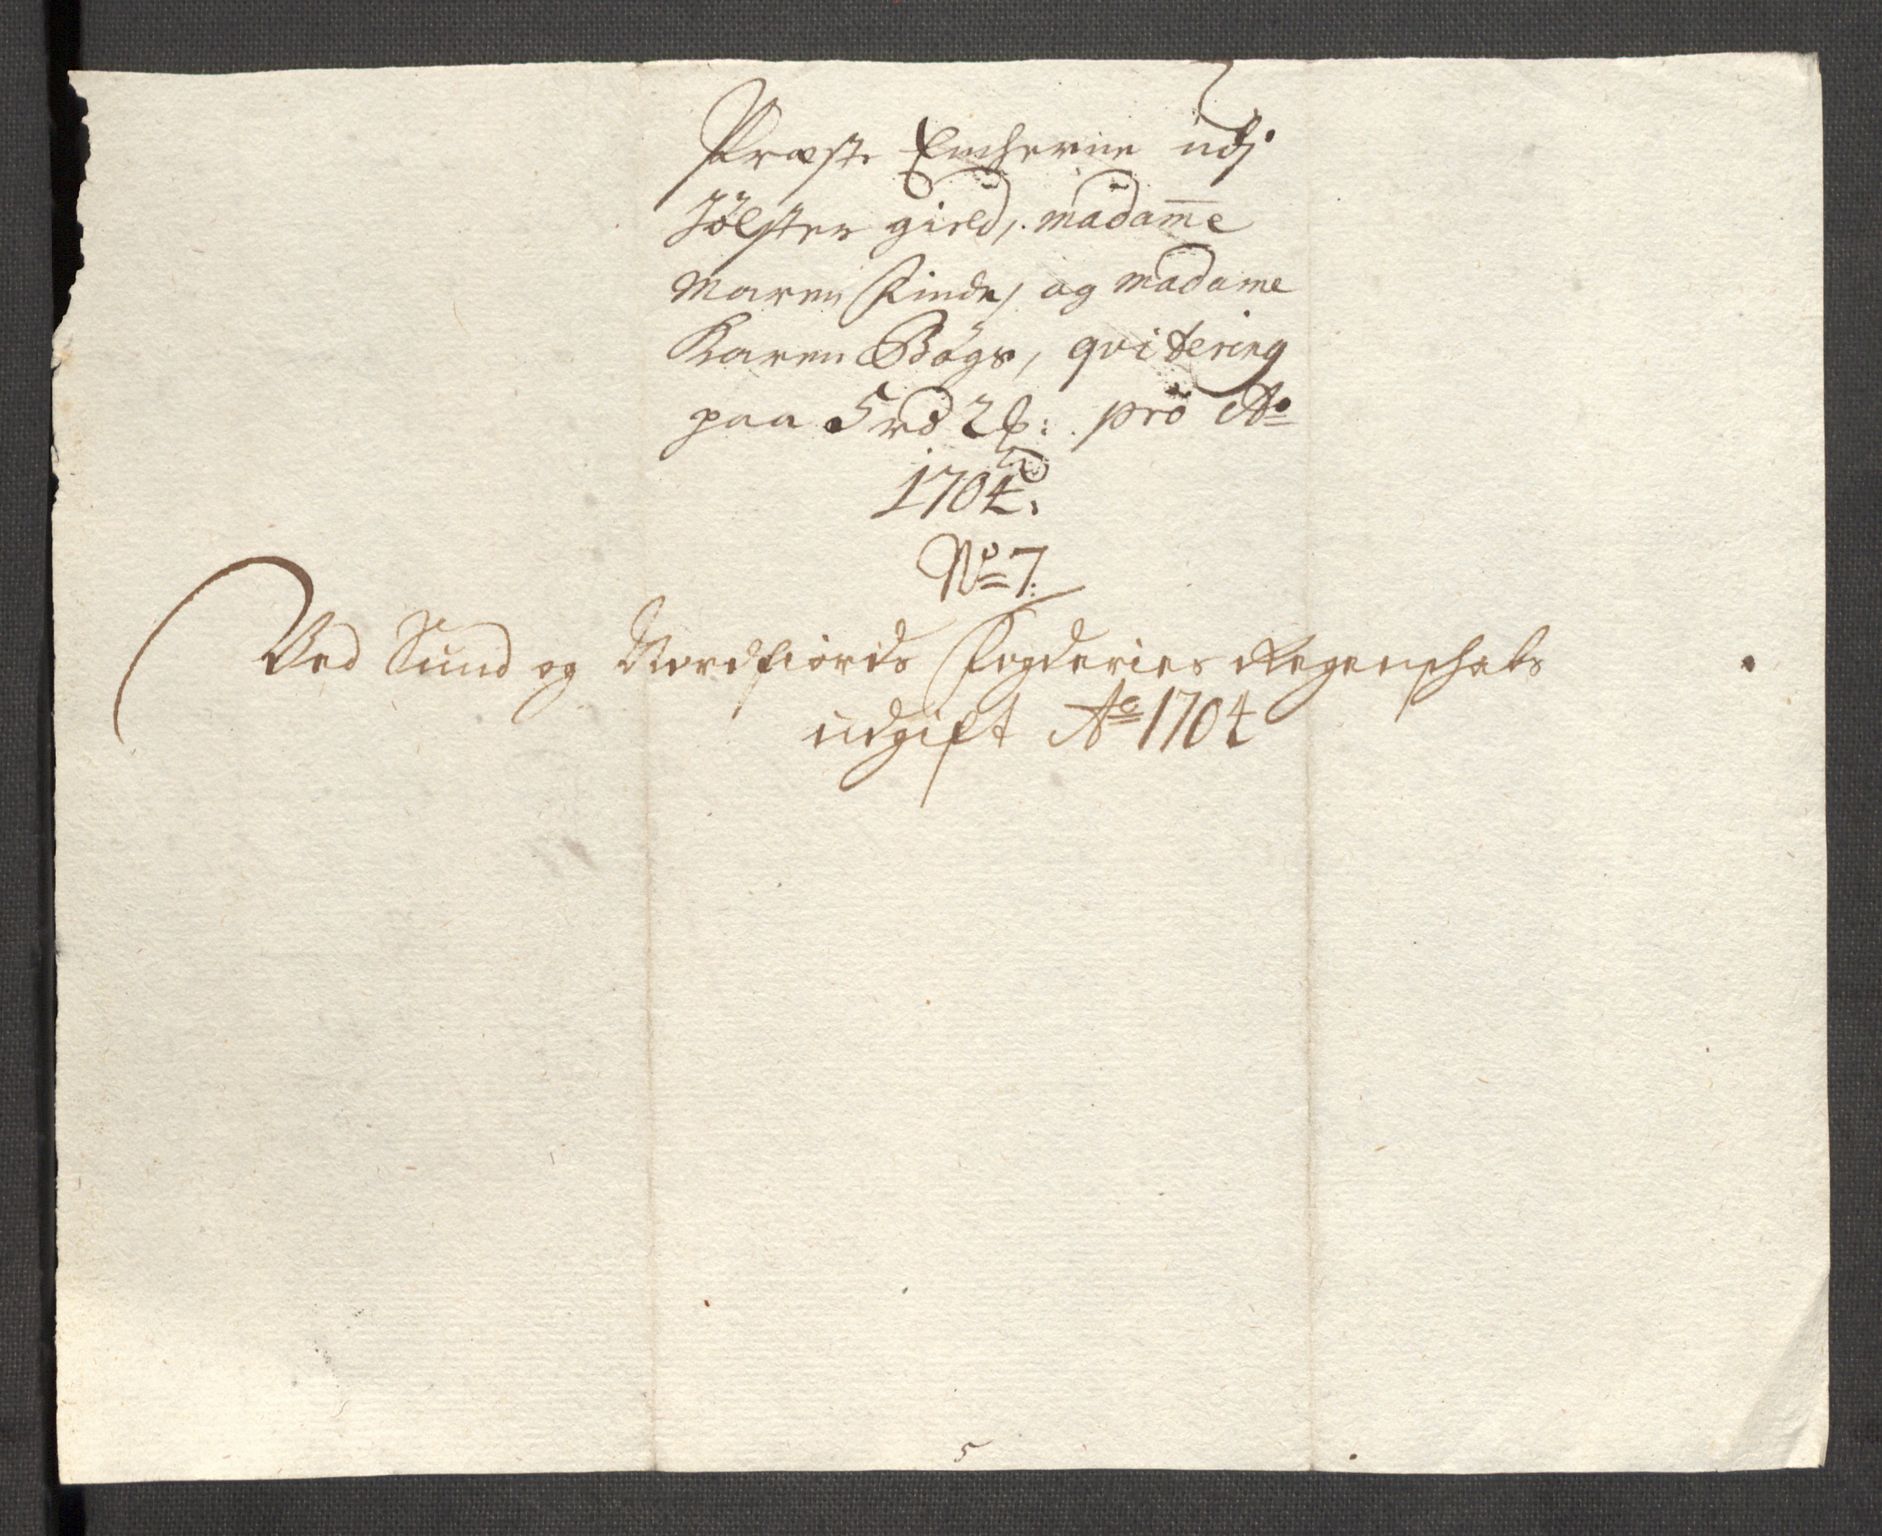 Præste Encherne udj
Jølster gield, madame
Maren Finde, og madame
Karen Bøgs, qvitering
paa 5 rd 2 ß: pro Ao
1704.
No 7.
Ved Sund og Nordfiords Fogderies Regenschabs
udgift Ao 1704
5